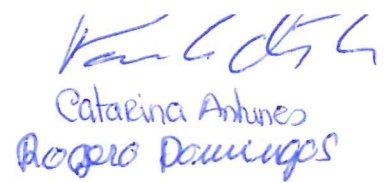 Catarina Antunes
Rogério Domingos